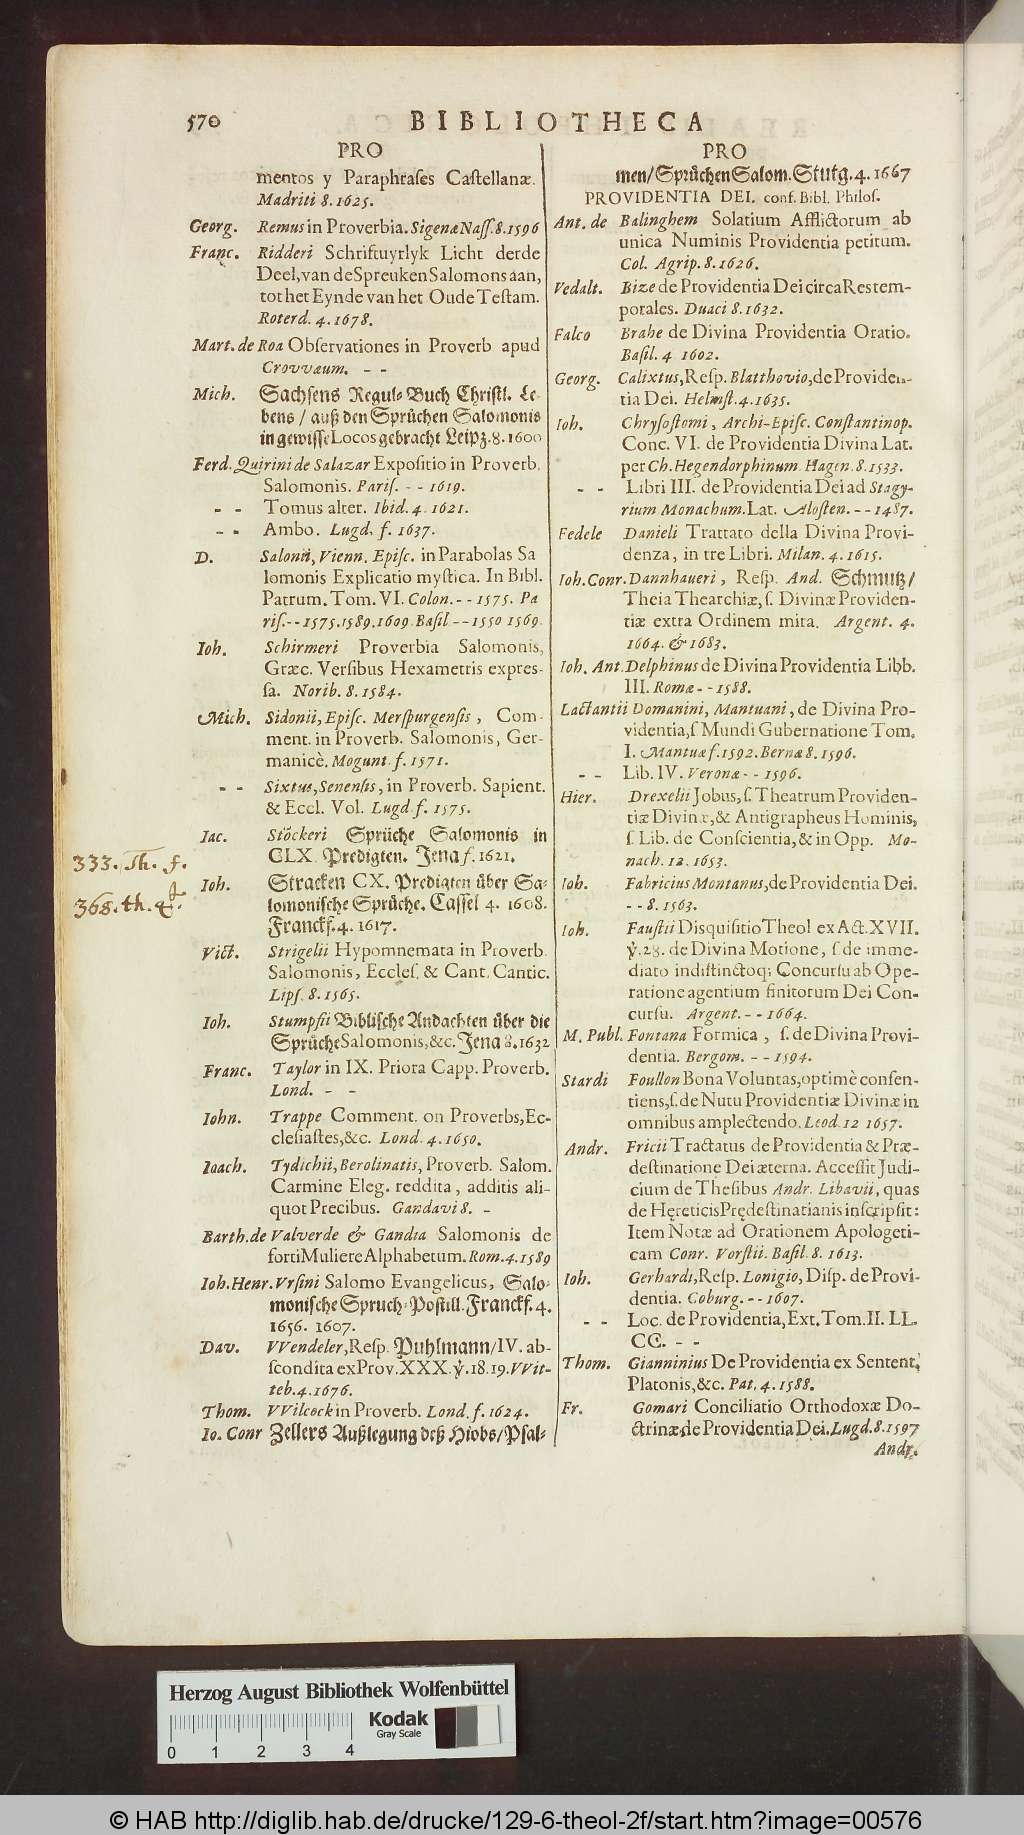 570 BIBLIOTHECA
PRO
mentos y Paraphrases Castellanæ.
Madriti 8. 1625.
Georg. Remus in Proverbia. Sigenæ Nass. 8. 1596
Franc. Ridderi Schriftuyrlyk Licht derde
Deel, van de Spreuken Salomons aan,
tot het Eynde van het Oude Testam.
Roterd. 4. 1678.
Mart. de Roa Observationes in Proverb apud
Crovvæum. - -
Mich. Sachsens Regul-Buch Christl. Le-
bens / auß den Sprüchen Salomonis
in gewisse Locos gebracht Leipz. 8. 1600
Ferd. Quirini de Salazar Expositio in Proverb.
Salomonis. Paris. - - 1619.
- - Tomus alter. Ibid. 4. 1621.
- - Ambo. Lugd. f. 1637.
D. Salonii, Vienn. Episc. in Parabolas Sa
lomonis Explicatio mystica. In Bibl.
Patrum. Tom. VI. Colon. - - 1575. Pa
ris. - - 1575. 1589. 1609. Basil - - 1550 1569.
Ioh. Schirmeri Proverbia Salomonis,
Græc. Versibus Hexametris expres-
sa. Norib. 8. 1584.
Mich. Sidonii, Episc. Merspurgensis, Com-
ment. in Proverb. Salomonis, Ger-
manicè. Mogunt. f. 1571.
- - Sixtus, Senensis, in Proverb. Sapient.
& Eccl. Vol. Lugd. f. 1575.
Iac. Stöckeri Sprüche Salomonis in
CLX. Predigten. Jena f. 1621.
333. Th. f.
Ioh. Stracken CX. Predigten über Sa-
368. th. 4
lomonische Sprüche. Cassel 4. 1608.
Franckf. 4. 1617.
Vict. Strigelii Hypomnemata in Proverb.
Salomonis, Eccles. & Cant. Cantic.
Lips. 8. 1565.
Ioh. Stumpfii Biblische Andachten über die
Sprüche Salomonis, &c. Jena 8. 1632
Franc. Taylor in IX. Priora Capp. Proverb.
Lond. - -
Iohn. Trappe Comment. on Proverbs, Ec-
clesiastes, &c. Lond. 4. 1650.
Ioach. Tydichii, Berolinatis, Proverb. Salom.
Carmine Eleg. reddita, additis ali-
quot Precibus. Gandavi 8. -
Barth. de Valverde & Gandia Salomonis de
forti Muliere Alphabetum. Rom. 4. 1589
Ioh. Henr. Vrsini Salomo Evangelicus, Salo-
monische Spruch-Postill. Franckf. 4.
1656. 1607.
Dav. VVendeler, Resp. Puhlmann / IV. ab-
scondita ex Prov. XXX. ỿ. 18. 19. VVit-
teb. 4. 1676.
Thom. VVilcock in Proverb. Lond. f. 1624.
Io. Conr Zellers Außlegung deß Hiobs / Psal-
PRO
men / Sprüchen Salom. Stutg. 4. 1667
PROVIDENTIA DEI. conf. Bibl. Philos.
Ant. de Balinghem Solatium Afflictorum ab
unica Numinis Providentia petitum.
Col. Agrip. 8. 1626.
Vedalt. Bize de Providentia Dei circa Res tem-
porales. Duaci 8. 1632.
Falco Brahe de Divina Providentia Oratio.
Basil. 4 1602.
Georg. Calixtus, Resp. Blatthovio, de Providen-
tia Dei. Helmst. 4. 1635.
Ioh. Chrysostomi, Archi-Episc. Constantinop.
Conc. VI. de Providentia Divina Lat.
per Ch. Hegendorphinum. Hagen. 8. 1533.
- - Libri III. de Providentia Dei ad Stagy-
rium Monachum. Lat. Alosten. - - 1487.
Fedele Danieli Trattato della Divina Provi-
denza, in tre Libri. Milan. 4. 1615.
Ioh. Conr. Dannhaueri, Resp. And. Schmutz /
Theia Thearchiæ, s. Divinæ Providen-
tiæ extra Ordinem mira. Argent. 4.
1664. & 1683.
Ioh. Ant. Delphinus de Divina Providentia Libb.
III. Romæ - - 1588.
Lactantii Domanini, Mantuani, de Divina Pro-
videntia, s Mundi Gubernatione Tom.
I. Mantuæ f. 1592. Bernæ 8. 1596.
- - Lib. IV. Veronæ - - 1596.
Hier. Drexelii Jobus, s. Theatrum Providen-
tiæ Divinæ, & Antigrapheus Hominis,
s. Lib. de Conscientia, & in Opp. Mo-
nach. 12. 1653.
Ioh. Fabricius Montanus, de Providentia Dei.
- - 8. 1563.
Ioh. Faustii Disquisitio Theol ex Act. XVII.
ỿ. 28. de Divina Motione, s de imme-
diato indistinctoq; Concursu ab Ope-
ratione agentium finitorum Dei Con-
cursu. Argent. - - 1664.
M. Publ. Fontana Formica, s. de Divina Provi-
dentia. Bergom. - - 1594.
Stardi Foullon Bona Voluntas, optimè consen-
tiens, s. de Nutu Providentiæ Divinæ in
omnibus amplectendo. Leod. 12 1657.
Andr. Fricii Tractatus de Providentia & Præ-
destinatione Dei æterna. Accessit Judi-
cium de Thesibus Andr. Libavii, quas
de Hęreticis Prędestinatianis inscripsit:
Item Notæ ad Orationem Apologeti-
cam Conr. Vorstii. Basil. 8. 1613.
Ioh. Gerhardi, Resp. Lonigio, Disp. de Provi-
dentia. Coburg. - - 1607.
- - Loc. de Providentia, Ext. Tom. II. LL.
CC. - -
Thom. Gianninius De Providentia ex Sentent.
Platonis, &c. Pat. 4. 1588.
Fr. Gomari Conciliatio Orthodoxæ Do-
ctrinæ de Providentia Dei. Lugd. 8. 1597
Andr.
Herzog August Bibliothek Wolfenbüttel
Kodak
Gray Scale
0 1 2 3 4
© HAB http://diglib.hab.de/drucke/129-6-theol-2f/start.htm?image=00576